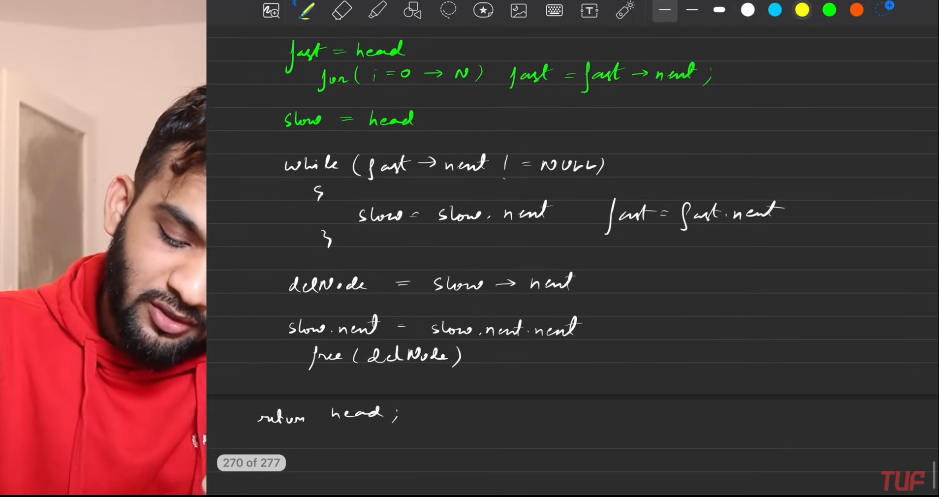 fast = head
for( i = 0 → N) fast = fast → next;
slow = head
while (fast → next != NULL)
{
slow = slow. next fast = fast. next
}
delNode = slow → next
slow.next = slow.next.next
free (delNode)
return head;
270 of 277
TUF